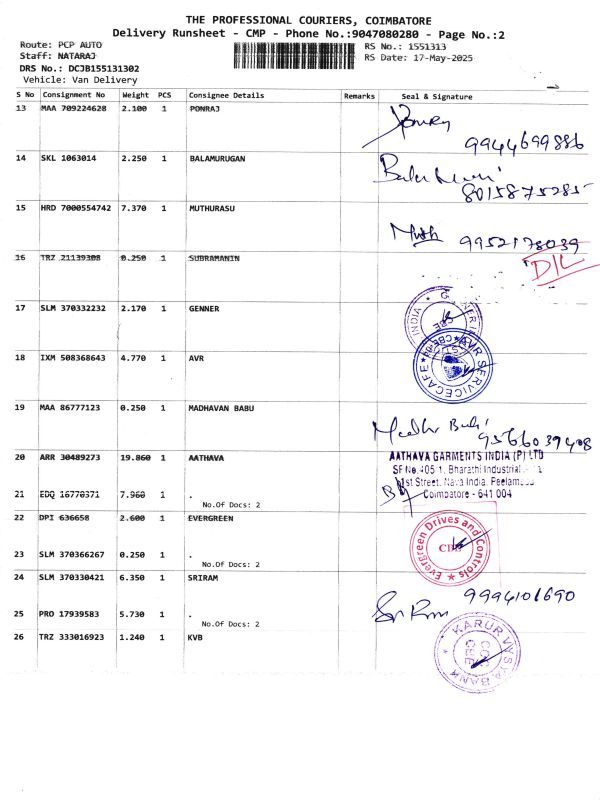 THE PROFESSIONAL COURIERS, COIMBATORE
Delivery Runsheet - CMP - Phone No.:9047080280 - Page No.:2
Route: PCP AUTO
RS No.: 1551313
Staff: NATARAJ
RS Date: 17-May-2025
DRS No.: DCJB155131302
Vehicle: Van Delivery
S No Consignment No Weight PCS Consignee Details Remarks Seal & Signature
13 MAA 709224628 2.100 1 PONRAJ
9944699886
14 SKL 1063014 2.250 1 BALAMURUGAN
8015875285
15 HRD 7000554742 7.370 1 MUTHURASU
Muth 9952178039
16 TRZ 21139308 0.250 1 SUBRAMANIN
D/L
17 SLM 370332232 2.170 1 GENNER
INDIA
CBE
18 IXM 508368643 4.770 1 AVR
AVR SERVICECAFE
19 MAA 86777123 0.250 1 MADHAVAN BABU
9566039408
20 ARR 30489273 19.860 1 AATHAVA
AATHAVA GARMENTS INDIA (P) LTD
SF No.405/1, Bharathi Industrial
1st Street, Nava India, Peelamedu
Coimbatore - 641 004
21 EDQ 16770371 7.960 1 .
No.Of Docs: 2
22 DPI 636658 2.600 1 EVERGREEN
Evergreen Drives and Controls
CBE
23 SLM 370366267 0.250 1 .
No.Of Docs: 2
24 SLM 370330421 6.350 1 SRIRAM
Sri Ram 9994101690
25 PRO 17939583 5.730 1 .
No.Of Docs: 2
26 TRZ 333016923 1.240 1 KVB
KARUR VYSYA BANK